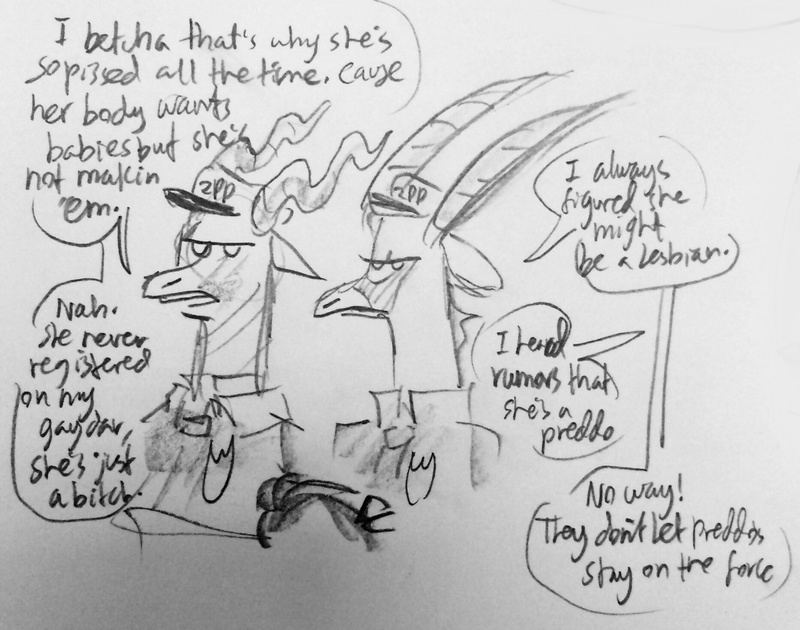 I betcha that's why she's
so pissed all the time. cause
her body wants
babies but she's
not makin
'em.
ZPP
ZPP
I always
figured she
might
be a lesbian.
Nah.
She never
registered
on my
gaydar,
she's just
a bitch.
I heard
rumors that
she's a
preddo
No way!
They don't let preddos
stay on the force